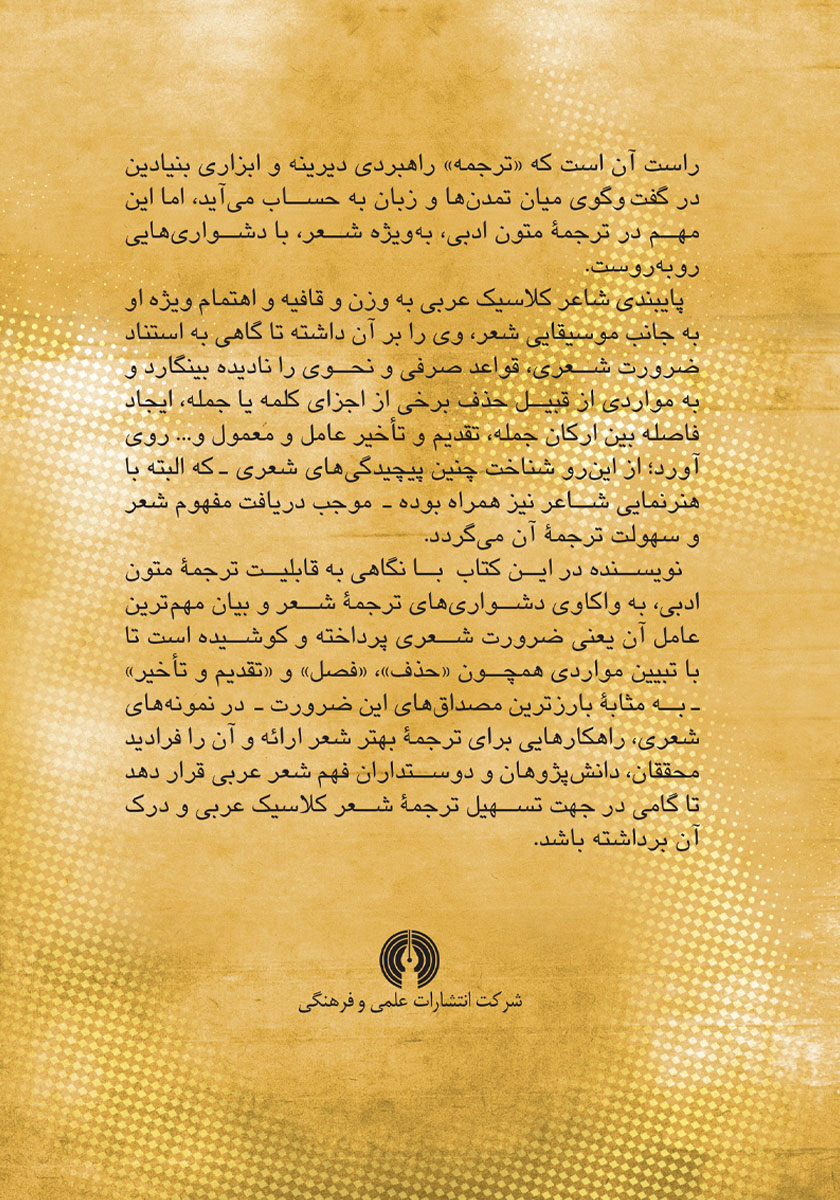 راست آن است که «ترجمه» راهبردی دیرینه و ابزاری بنیادین
در گفت‌وگوی میان تمدن‌ها و زبان به حساب می‌آید، اما این
مهم در ترجمهٔ متون ادبی، به‌ویژه شعر، با دشواری‌هایی
روبه‌روست.
پایبندی شاعر کلاسیک عربی به وزن و قافیه و اهتمام ویژه او
به جانب موسیقایی شعر، وی را بر آن داشته تا گاهی به استناد
ضرورت شعری، قواعد صرفی و نحوی را نادیده بینگارد و
به مواردی از قبیل حذف برخی از اجزای کلمه یا جمله، ایجاد
فاصله بین ارکان جمله، تقدیم و تأخیر عامل و معمول و... روی
آورد؛ از این‌رو شناخت چنین پیچیدگی‌های شعری ـ که البته با
هنرنمایی شاعر نیز همراه بوده ـ موجب دریافت مفهوم شعر
و سهولت ترجمهٔ آن می‌گردد.
نویسنده در این کتاب با نگاهی به قابلیت ترجمهٔ متون
ادبی، به واکاوی دشواری‌های ترجمهٔ شعر و بیان مهم‌ترین
عامل آن یعنی ضرورت شعری پرداخته و کوشیده است تا
با تبیین مواردی همچون «حذف»، «فصل» و «تقدیم و تأخیر»
ـ به مثابهٔ بارزترین مصداق‌های این ضرورت ـ در نمونه‌های
شعری، راهکارهایی برای ترجمهٔ بهتر شعر ارائه و آن را فرادید
محققان، دانش‌پژوهان و دوستداران فهم شعر عربی قرار دهد
تا گامی در جهت تسهیل ترجمهٔ شعر کلاسیک عربی و درک
آن برداشته باشد.
شرکت انتشارات علمی و فرهنگی